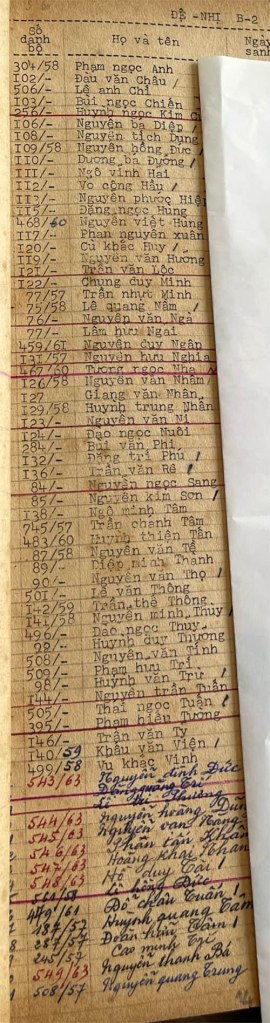 ĐỆ-NHI B-2
Số danh bộ Họ và tên Ngày sanh
304/58 Phạm ngọc Anh
I02/- Đậu văn Châu /
506/- Lê anh Chi
I03/- Bùi ngọc Chiến
256/- Huỳnh ngọc Kim
I06/- Nguyễn bá Diệp /
I08/- Nguyễn tích Dụng
I09/58 Nguyễn hồng Đức /
II0/- Dương bá Đường /
III/- Ngô vĩnh Hai
II2/- Võ công Hầu /
II3/- Nguyễn phước
II5/- Đặng ngọc Hùng
468/60 Nguyễn việt Hùng
II7/- Phan nguyên xuân
I20/- Cù khắc Huy /
II9/- Nguyễn văn Hương
I2I/- Trần văn Lộc
I22/- Chung duy Minh
77/57 Trần nhựt Minh
75/58 Lê quang Năm /
76/- Nguyễn văn Ngà
77/- Lâm hữu Ngai
459/6I Nguyễn duy Ngân
I3I/57 Nguyễn hữu Nghĩa
467/60 Tương ngọc Nhạ
I26/58 Nguyễn văn Nhâm /
I27 Giang văn Nhân
I29/58 Huỳnh trung Nhân
I23/- Nguyễn văn Ni
I24/- Đạo ngọc Nuôi
284/- Bùi văn Phi
I32/- Đặng trí Phú /
I36/- Trần văn Rê /
84/- Nguyễn ngọc Sang
85/- Nguyễn kim Sơn /
I38/- Ngô minh Tâm
745/57 Trần chanh Tâm
483/60 Huỳnh thiện Tấn
87/58 Nguyễn văn Tề
89/- Diệp minh Thanh
90/- Nguyễn văn Thọ /
50I/- Lê văn Thông
I42/59 Trần thế Thông
I4I/58 Nguyễn minh Thuy /
496/- Đao ngọc Thuy
Huỳnh duy Tường
508/- Nguyễn văn Tỉnh
509/- Phạm hữu Tri
98/- Huỳnh văn Trư /
I44/- Nguyễn trần Tuấn
505/- Thai ngọc Tuân /
395/- Phạm hiếu Tường
I46/- Trần văn Ty
I40/59 Khâu văn Viện /
499/58 Vu khắc Vinh
543/63 Nguyễn đình Đức
Đặng quang Trí
544/63 Nguyễn hoàng
545/63 Nguyễn văn Năng
546/63 Phan tấn Khan
547/63 Hoàng khải
548/63 Hồ duy Tài /
Lê hồng Đức
479/61 Đỗ châu Tuân /
187/57 Huỳnh quang Tâm
287/57 Đoàn hữu Tâm /
245/57 Cao minh Trí
549/63 Nguyễn thanh Bá
508/57 Nguyễn quang Trung